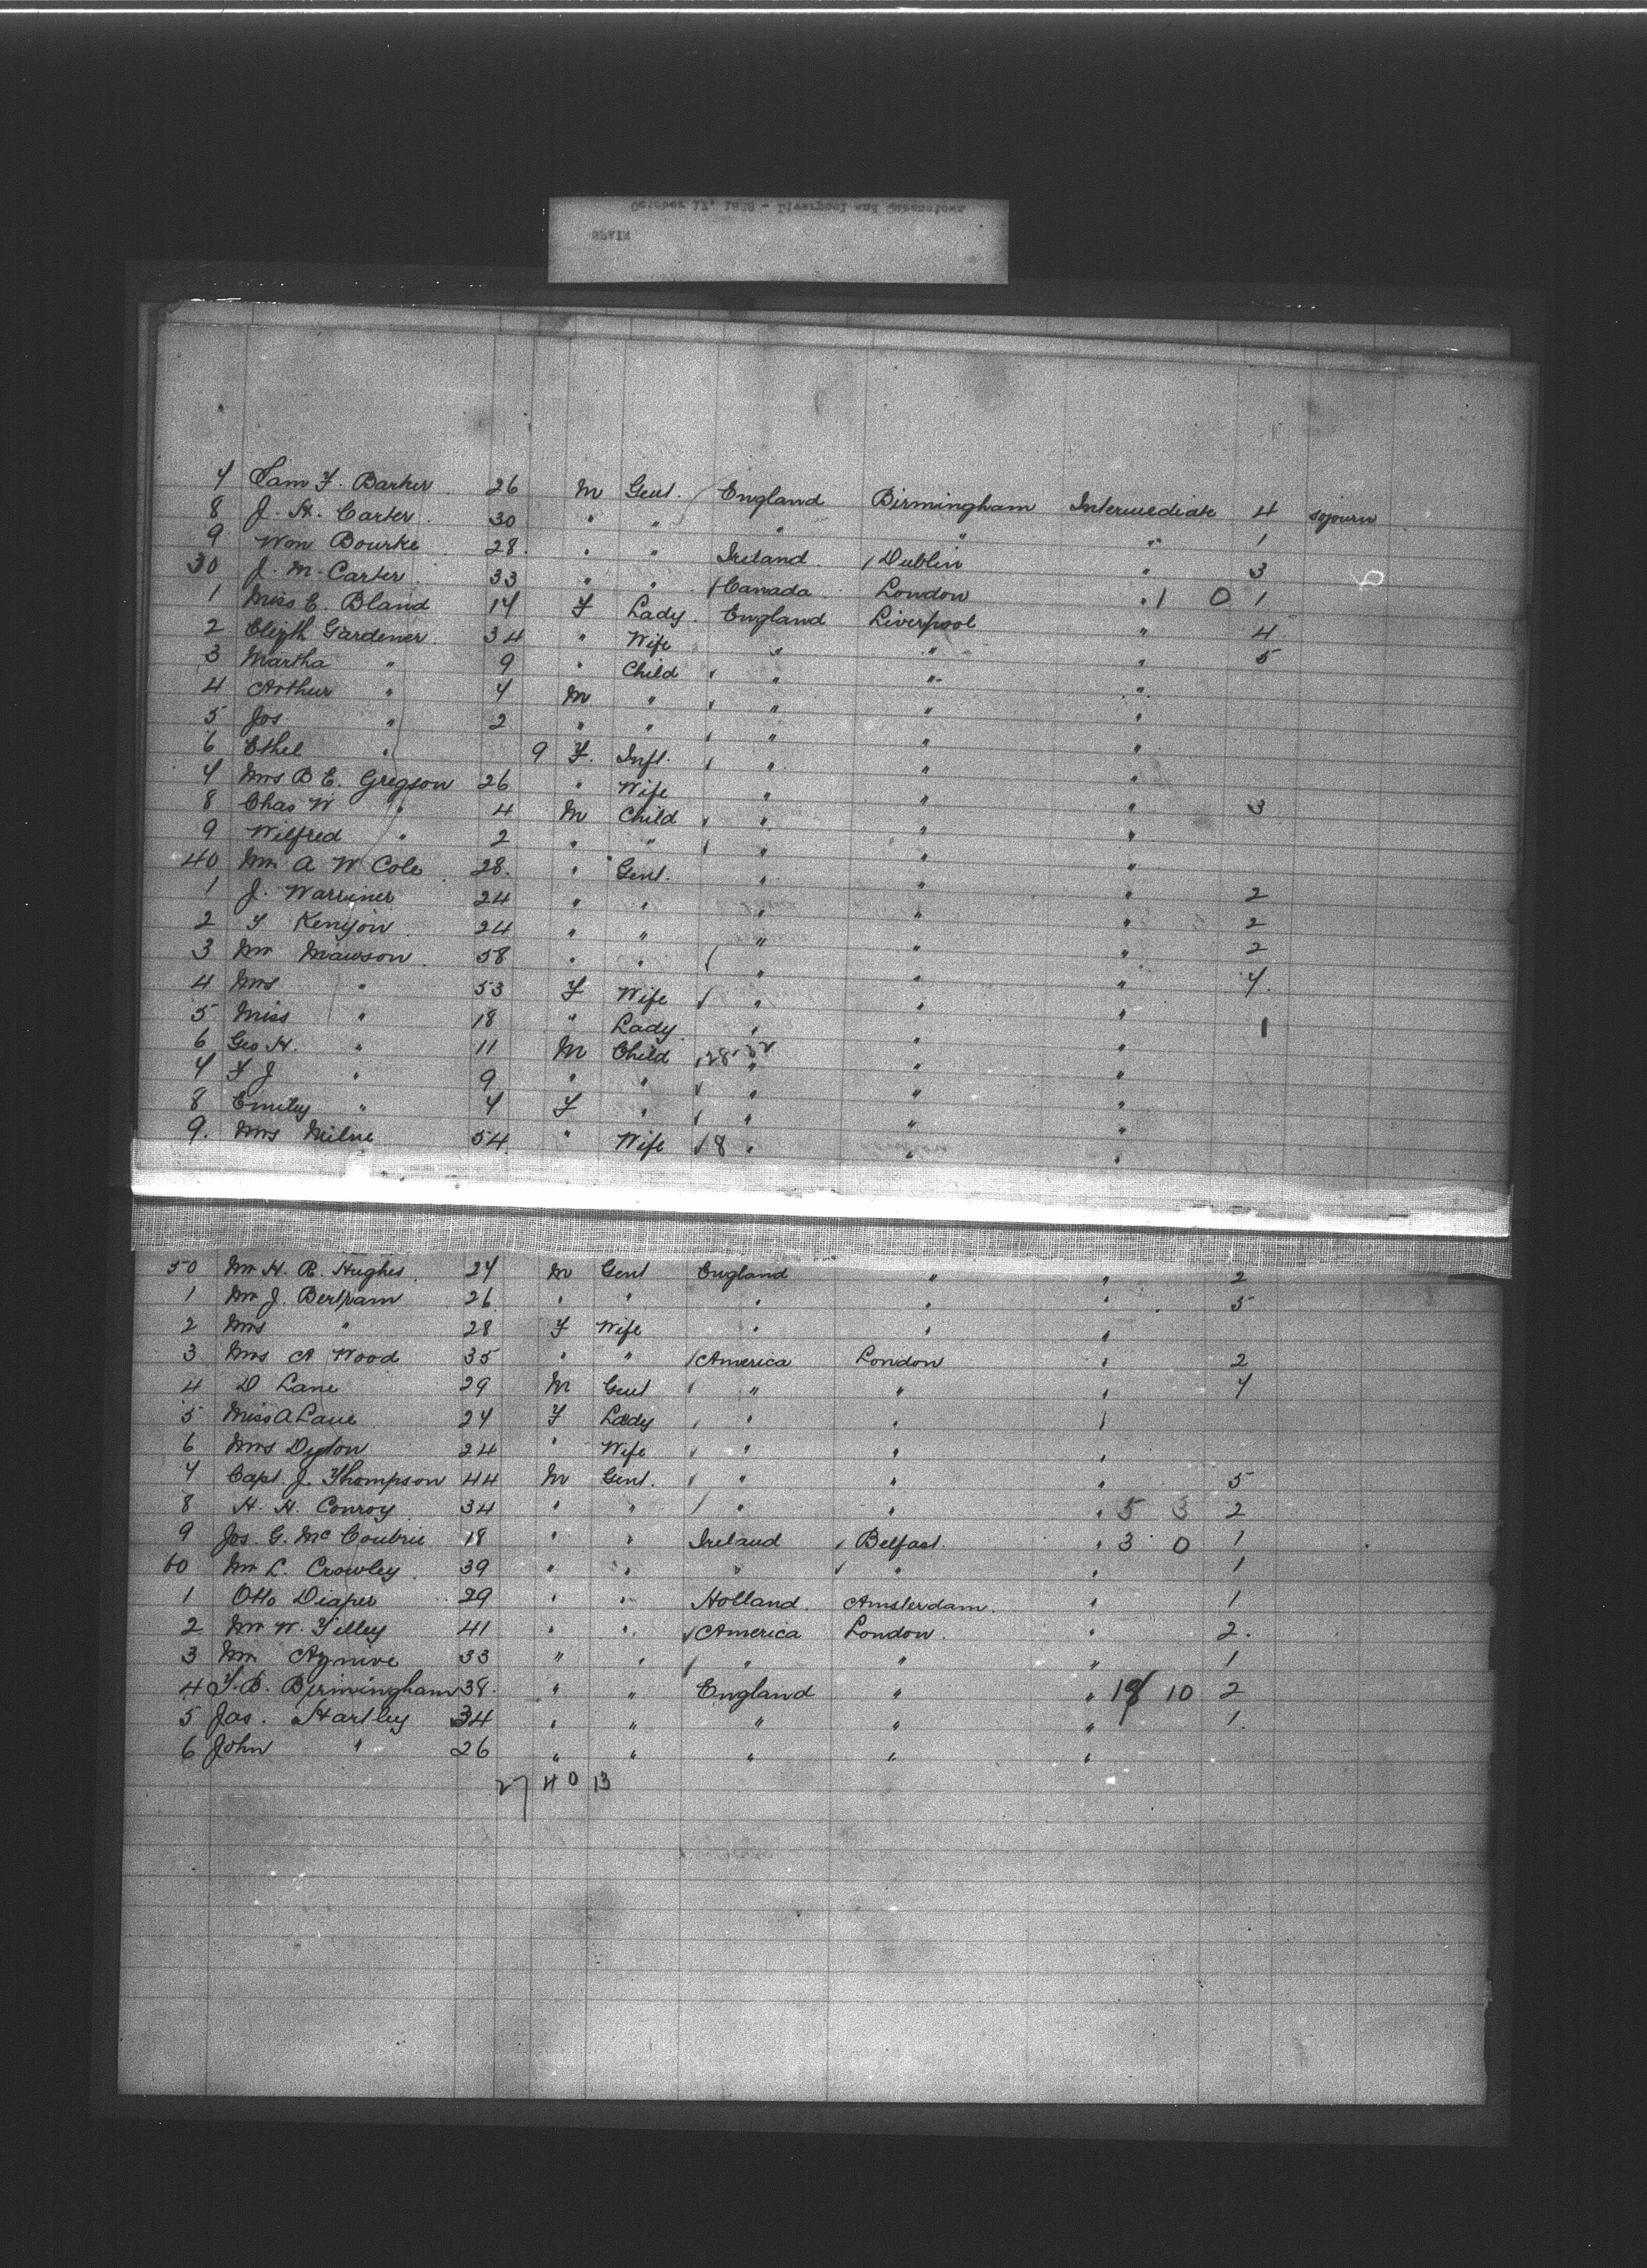 October 17, 1888 - Liverpool and Queenstown
SPAIN
7 Sam F. Barker 26 M Gent. England Birmingham Intermediate 4 sojourn
8 J. H. Carter 30 " " " " " 1
9 Wm Bourke 28 " " Ireland Dublin " 3
30 J. M. Carter 33 " " Canada London " 1 0 1
1 Miss E. Bland 17 F Lady England Liverpool " 4
2 Elizth Gardener 34 " Wife " " " 5
3 Martha " 9 " Child " " "
4 Arthur " 7 M " " " "
5 Jos " 2 " " " " "
6 Ethel " 9 F. Inft. " " "
7 Mrs B E. Gregson 26 " Wife " " " 3
8 Chas W " 4 M Child " " "
9 Wilfred " 2 " " " " "
40 Mr A W Cole 28. " Gent. " " " 2
1 J. Warriner 24 " " " " " 2
2 F Kenyon 24 " " " " " 2
3 Mr Mawson 58 " " " " " 7.
4 Mrs " 53 F Wife " " "
5 Miss " 18 " Lady " " " 1
6 Geo H. " 11 M Child " " "
7 F J " 9 " " " " "
8 Emily " 7 F " " " "
9. Mrs Milne 54. " Wife 8 " " "
50 Mr H. R. Hughes 27 M Gent England " " 2
1 Mr J. Bertram 26 " " " " " 5
2 Mrs " 28 F Wife " " "
3 Mrs A Wood 35 " " America London " 2
4 D Lane 29 M Gent " " " 7
5 Miss A Lane 27 F Lady " " "
6 Mrs Dyson 24 " Wife " " "
7 Capt. J. Thompson 44 M Gent. " " " 5
8 H. H. Conroy 34 " " " " " 5 3 2
9 Jos. G. McCoubrie 18 " " Ireland Belfast " 3 0 1
60 Mr L. Crowley 39 " " " " " 1
1 Otto Diaper 29 " " Holland. Amsterdam. " 1
2 Mr W. Tilley 41 " " America London. " 2.
3 Mr 33 " " " " " 1
4 T. B. Birmingham 38. " " England " " 10 2
5 Jas. Hartley 34 " " " " " 1.
6 John " 26 " " " " "
27 4 0 13